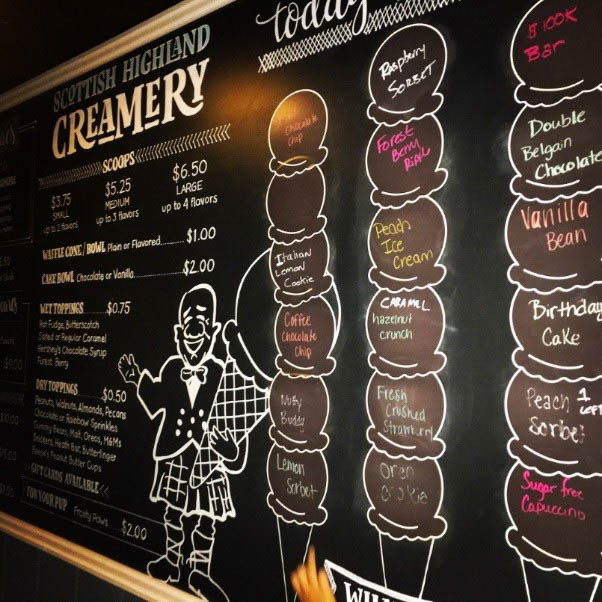 today
SCOTTISH HIGHLAND
CREAMERY
SCOOPS
$3.75
SMALL
up to 2 flavors
$5.25
MEDIUM
up to 3 flavors
$6.50
LARGE
up to 4 flavors
WAFFLE CONE / BOWL Plain or Flavored $1.00
CAKE BOWL Chocolate or Vanilla $2.00
WET TOPPINGS $0.75
Hot Fudge, Butterscotch
Salted or Regular Caramel
Hershey's Chocolate Syrup
Forest Berry
DRY TOPPINGS $0.50
Peanuts, Walnuts, Almonds, Pecans
Chocolate or Rainbow Sprinkles
Gummy Bears, Malt, Oreos, M&Ms
Snickers, Heath Bar, Butterfinger
Reese's Peanut Butter Cups
GIFT CARDS AVAILABLE
FOR YOUR PUP Frosty Paws $2.00
chocolate
chip
Italian
Lemon
Cookie
Coffee
Chocolate
Chip
Nutty
Buddy
Lemon
Sorbet
Raspberry
SORBET
Forest
Berry
Ripple
Peach
Ice
Cream
CARAMEL
hazelnut
crunch
Fresh
Crushed
Strawberry
Oreo
Cookie
$100K
Bar
Double
Belgain
Chocolate
Vanilla
Bean
Birthday
Cake
Peach 1
Sorbet Left
Sugar free
Capuccino